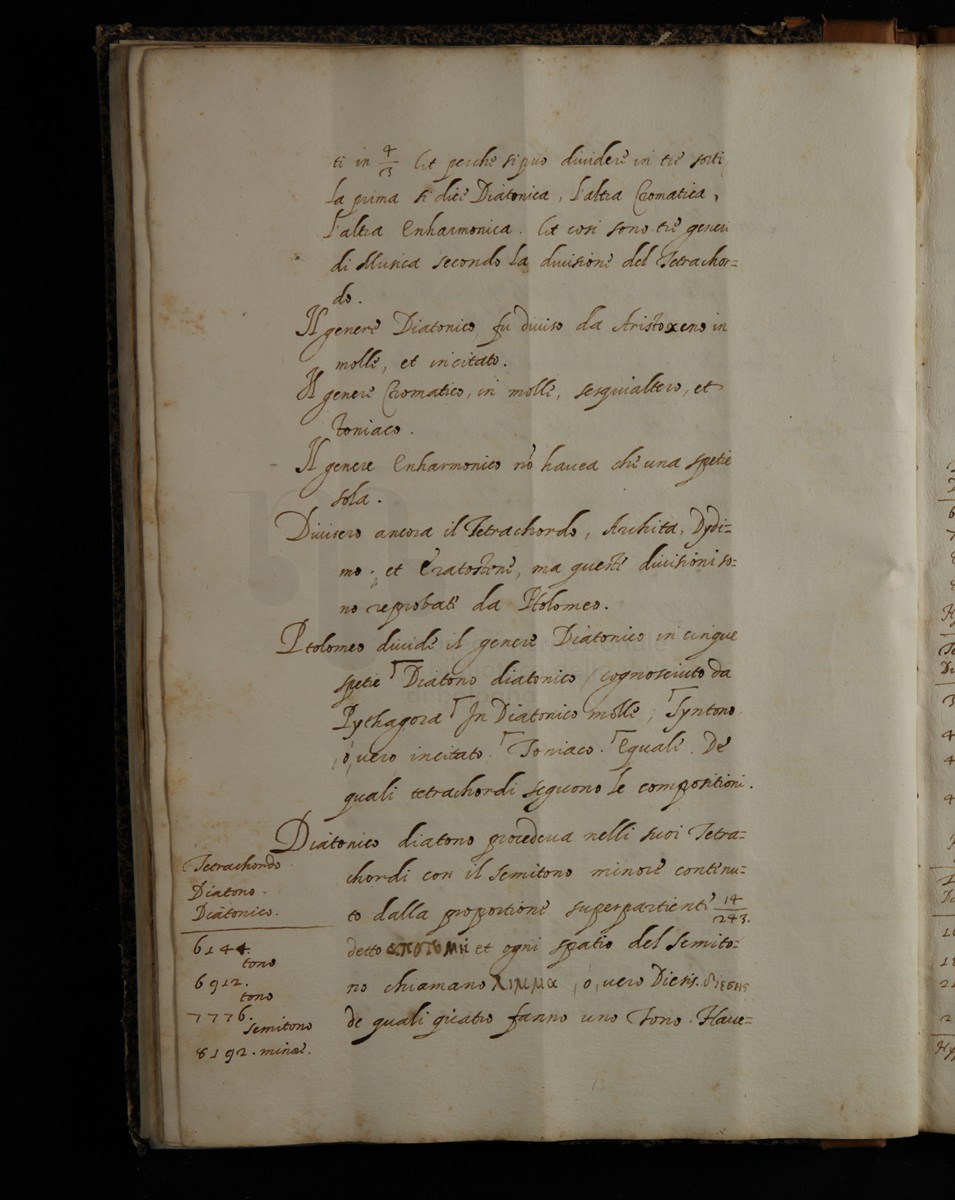 ti in 4/3 Et perche si può dividere in tre sorti
la prima si dice Diatonica, l'altra Cromatica,
l'altra Enharmonica. Et cosi sono tre generi
di Musica secondo la divisione del Tetrachor=
do.
Il genere Diatonico fu diviso da Aristoxeno in
molle, et incitato.
Il genere Cromatico, in molle, sesquialtero, et
Toniaco.
Il genere Enharmonico nō havea che una spetie
sola.
Divisero ancora il Tetrachordo, Archita, Dydi=
mo, et Eratostene, ma queste divisioni so=
no reprobate da Ptolomeo.
Ptolomeo divide il genere Diatonico in cinque
spetie Diatono diatonico cognosciuto da
Pythagora In Diatonico molle, Syntono
ò, vero incitato. Toniaco. Equale. De
quali tetrachordi seguono le compositioni.
Diatonico diatono procedeva nelli suoi Tetra=
chordi con il semitono minore contenu=
to dalla proportione superpartiente 14/243.
detto ἀποτομὴ et ogni spatio del semito=
no chiamano λιμμα, ò, vero Diesis. διεσεις
de quali quatro fanno uno Tono. Have=
Tetrachordo
Diatono.
Diatonico.
6144.
tono
6912.
tono
7776.
semitono
8192. minore.